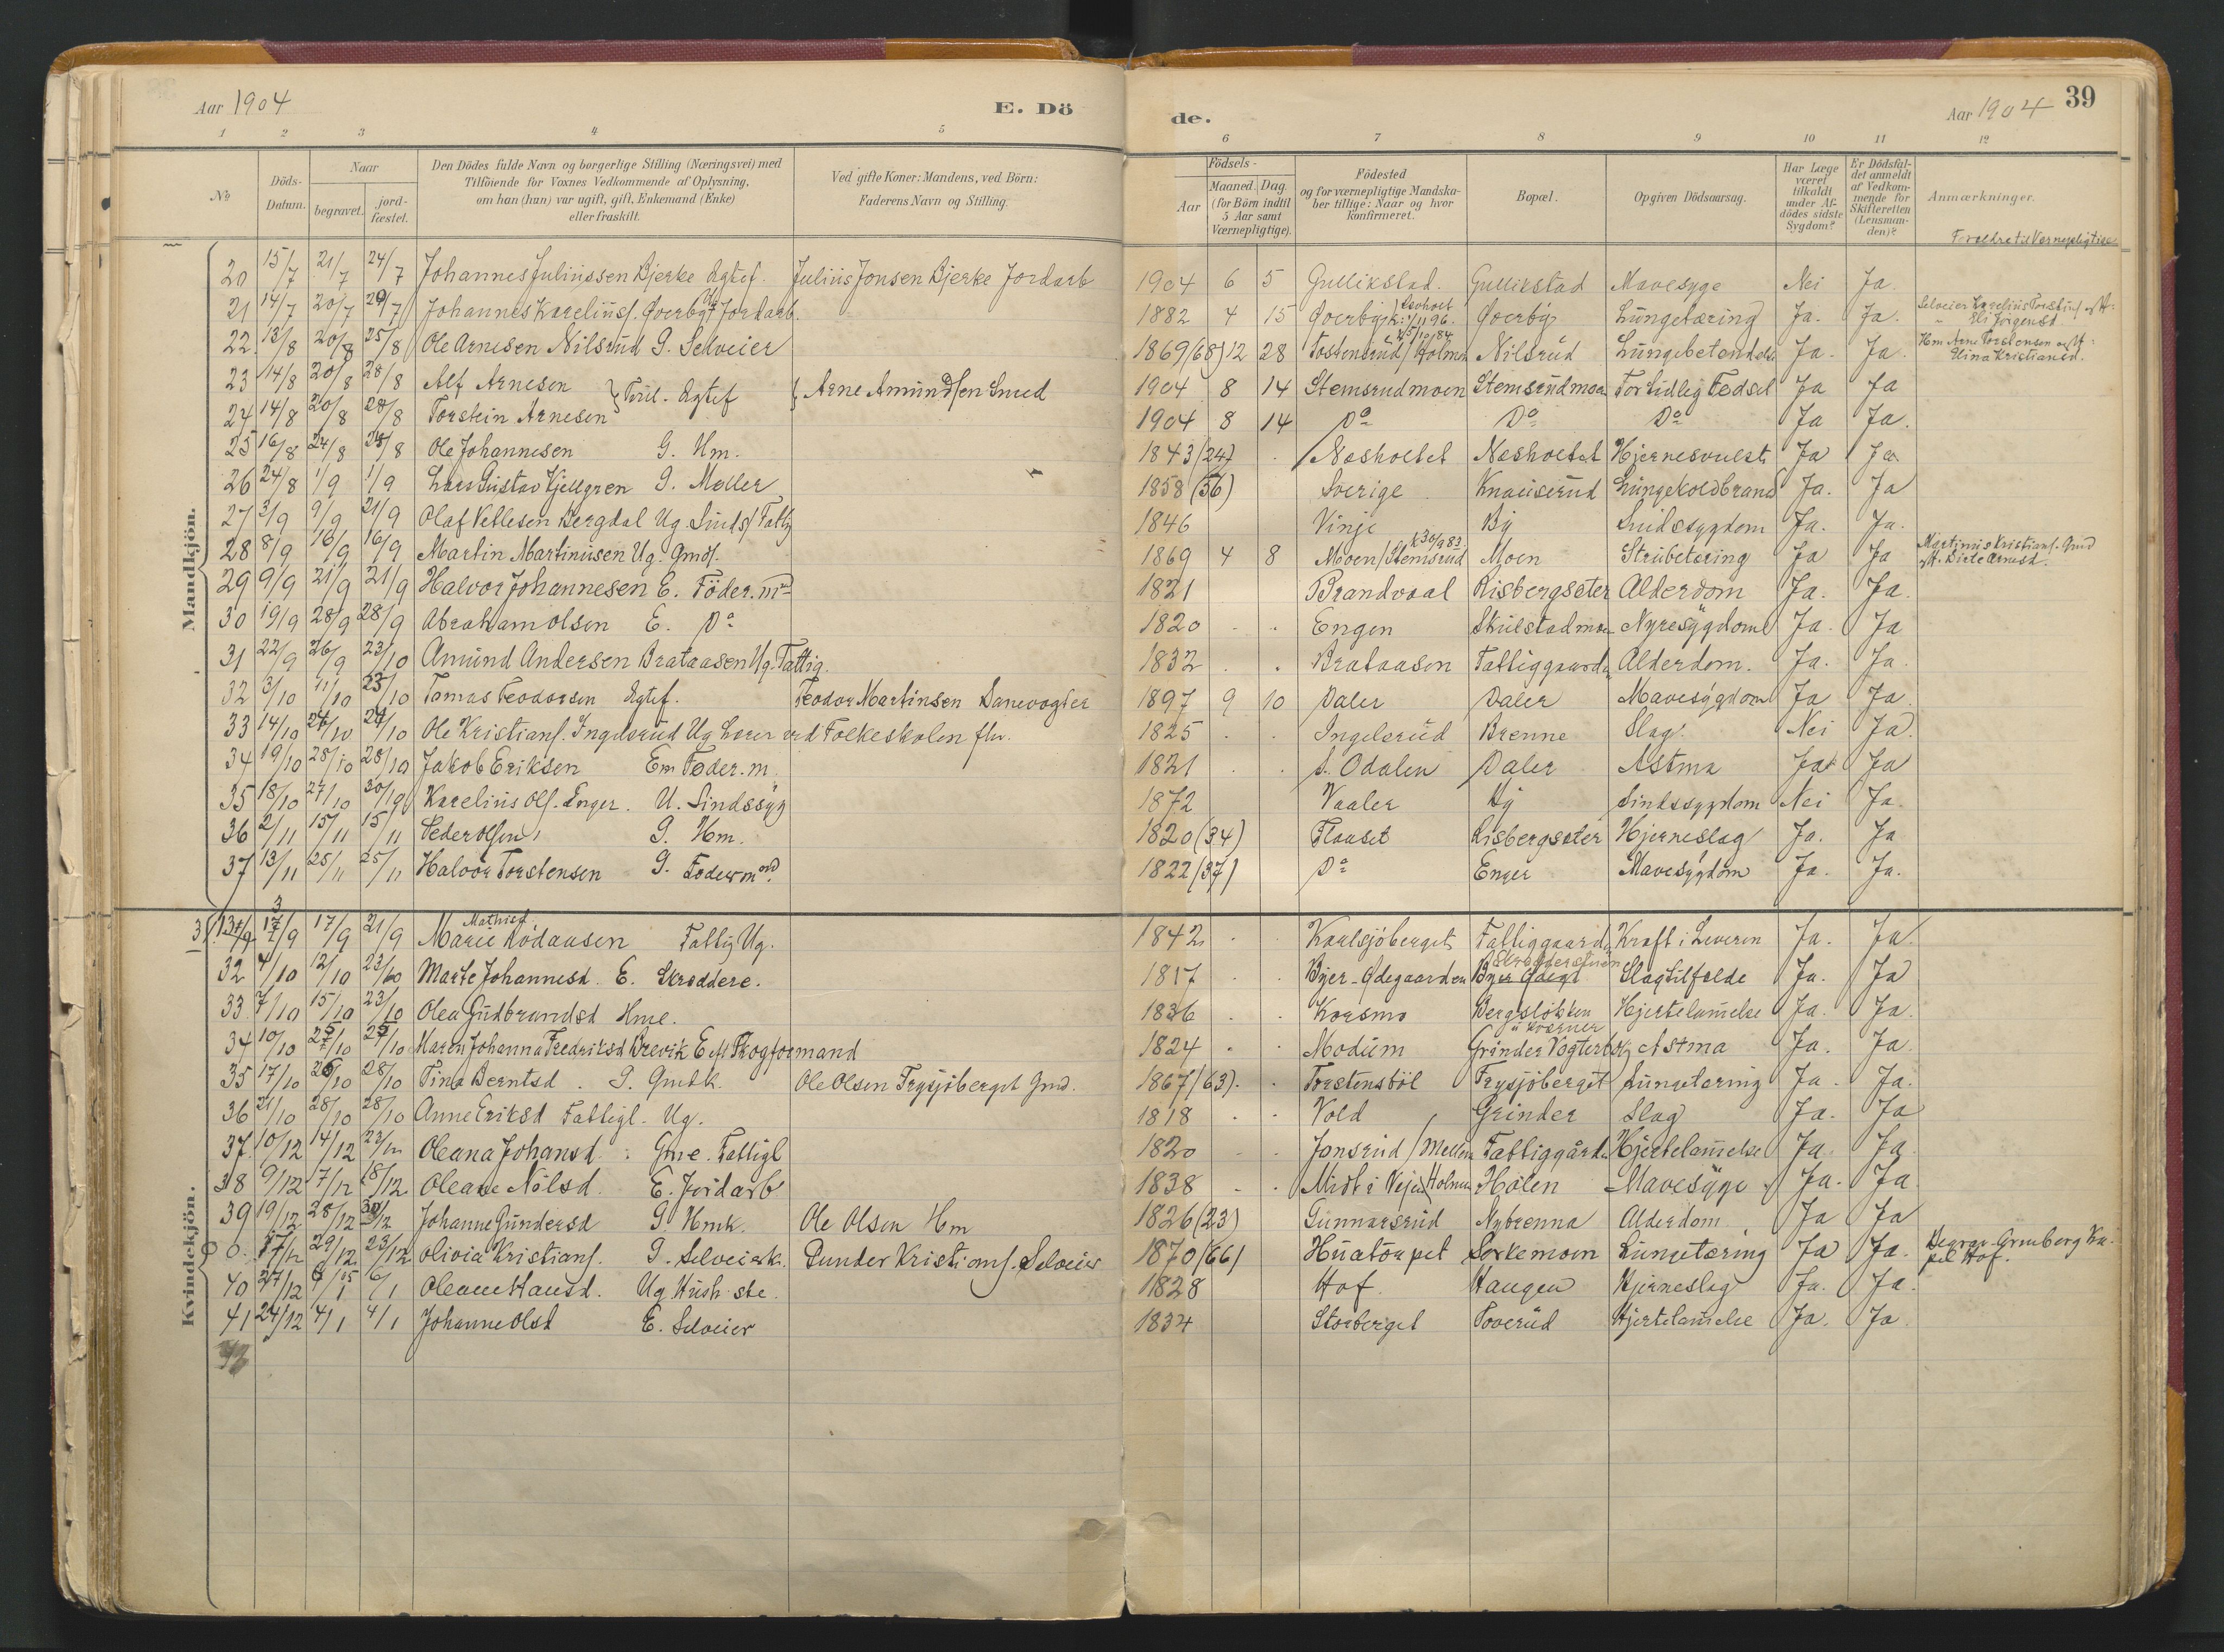 Aar 1904 E. Dö
de. Aar 1904 39
1 2 3 4 5 6 7 8 9 10 11 12
No
Döds-Datum.
Naar
begravet.
jord-fæstet.
Den Dödes fulde Navn og borgerlige Stilling (Næringsvei) med
Tilföiende for Voxnes Vedkommende af Oplysning,
om han (hun) var ugift, gift, Enkemand (Enke)
eller fraskilt.
Ved gifte Koner: Mandens, ved Börn:
Faderens Navn og Stilling.
Födsels-
Aar
Maaned. Dag.
(for Börn indtil
5 Aar samt
Værnepligtige).
Födested
og for værnepligtige Mandska-
ber tillige: Naar og hvor
konfirmeret.
Bopæl.
Opgiven Dödsaarsag.
Har Læge
været
tilkaldt
under Af-
dödes sidste
Sygdom?
Er Dödsfal-
det anmeldt
af Vedkom-
mende for
Skifteretten
(Lensman-
den)?
Anmærkninger.
Forældre til Værnepligtige
Mandkjön.
20 15/7 21/7 24/7 Johannes Juliussen Bjerke Ægtef. Julius Jonsen Bjerke Jordarb 1904 6 5 Gullikstad. Gullikstad Mavesyge Nei Ja.
21 14/7 20/7 Johannes Kareliusf. Overby Jordarb. 1882 4 15 Overby Overby Lungetæring Ja. Ja.
22 13/8 20/8 25/8 Ole Arnesen Nilsrud G. Selveier 1869 (68) 12 28 Tostensrud/Holmen Nilsrud Lungebetændelse Ja. Ja. Hm Arne Torstensen og H:
Elina Kristiansd.
23 14/8 20/8 28/8 Alf Arnesen } Tvil. Ægtef { Arne Amundsen Smed 1904 8 14 Stemsrudmoen Stemsrudmoen For tidlig Fødsel Ja Ja
24 14/8 20/8 28/8 Torstein Arnesen 1904 8 14 Do Do Do Ja Ja.
25 16/8 24/8 28/8 Ole Johannesen G. Hm. 1843 (24) Næsholtet Næsholtet Hjernesvulst Ja Ja
26 24/8 1/9 1/9 Lars Gustav Kjellgren G. Møller 1858 (56) Sverige Knauserud Lungekoldbrand Ja. Ja
27 3/9 9/9 21/9 Olaf Vetlesen Bergdal Ug. Sinds/ Fattig 1846 Vinje By Sindssygdom Ja. Ja.
28 8/9 16/9 16/9 Martin Martinusen Ug. Gmds. 1869 4 8 Moen/Stemsrud k 30/9 83 Moen Strubetæring Ja Ja Martinus Kristians. Gmd
og H. Dirte Arnesd.
29 9/9 21/9 21/9 Halvor Johannesen E. Föder.md 1821 Brandvaal Risbergsæter Alderdom Ja. Ja.
30 19/9 28/9 28/9 Abraham Olsen E. Do 1820 Engen Skulstadmoen Nyresygdom Ja. Ja
31 22/9 26/9 23/10 Amund Andersen Brataasen Ug. Fattig. 1832 Brataasen Fattiggaarden Alderdom. Ja. Ja.
32 3/10 11/10 23/10 Tomas Teodorsen Ægtef. Teodor Martinsen Banevogter 1897 9 10 Daler Daler Mavesygdom Ja Ja.
33 14/10 24/10 24/10 Ole Kristians. Ingelsrud Ug Lærer ved Folkeskolen fhv. 1825 Ingelsrud Brenne Slag. Nei Ja.
34 19/10 28/10 28/10 Jakob Eriksen Em Föder.m. 1821 S. Odalen Daler Astma Ja Ja
35 18/10 27/10 30/10 Karelius Ols. Enger. U. Sindssyg 1872 Vaaler By Sindssygdom Nei Ja.
36 2/11 15/11 15/11 Peder Olsen G. Hm. 1820 (34) Flauset Risbergsæter Hjerneslag Ja. Ja
37 13/11 25/11 25/11 Halvor Torstensen G. Foderm. 1822 (37) Do Enger Mavesygdom Ja. Ja.
Kvindekjön.
31 13/9 17/9 21/9 Marie Mathisd. Rödaasen Fattig Ug. 1842 Karlsjöberget Fattiggaarden Kræft i Leveren Ja. Ja.
32 4/10 12/10 23/10 Marte Johannesd. E. Skræddere. 1817 Byer-Ödegaarden Skrædderstuen Slagtilfælde Ja. Ja
33 7/10 15/10 23/10 Olea Gudbrandsd Hme. 1836 Korsmo Bergsløkken Hjertelammelse Ja. Ja.
34 10/10 25/10 25/10 Maren Johanna Fredriksd Brevik E eft Skogformand 1824 Modum Grinder Vogterb. Astma Ja. Ja.
35 17/10 26/10 28/10 Tina Berntsd. G. Gmdk. Ole Olsen Frysjöberget Gmd. 1867 (63). Torstensböl Frysjöberget Lungetæring Ja. Ja.
36 21/10 28/10 28/10 Anne Eriksd Fattigl. Ug. 1818 Vold Grinder Slag Ja. Ja
37 10/12 14/12 23/12 Oleana Johansd. Gme. Fattigl 1820 Jonsrud/Mellem Fattiggården Hjertelammelse Ja. Ja
38 9/12 7/12 18/12 Oleane Nilsd. E. Jordarb 1838 Midt i Vejen Holmen Holen Mavesyge Ja. Ja
39 19/12 28/12 30/12 Johanne Gundersd G. Hmk. Ole Olsen Hm 1826 (23) Gunnarsrud Nybrenna Alderdom Ja Ja
0. 17/12 29/12 23/12 Olivia Kristians. G. Selveierk. Gunder Kristians. Selveier 1870 (66) Huatorpet Sorkemoen Lungetæring Ja Ja. Begrav. Gruuberg Ka-
pel Hof.
40 27/12 6/1 05 6/1 Oleane Hansd. Ug Hush.ske. 1828 Hof. Haugen Hjerneslag Ja. Ja.
41 24/12 4/1 4/1 Johanne Olsd E. Selveier 1834 Storberget Toverud Hjertelammelse Ja. Ja